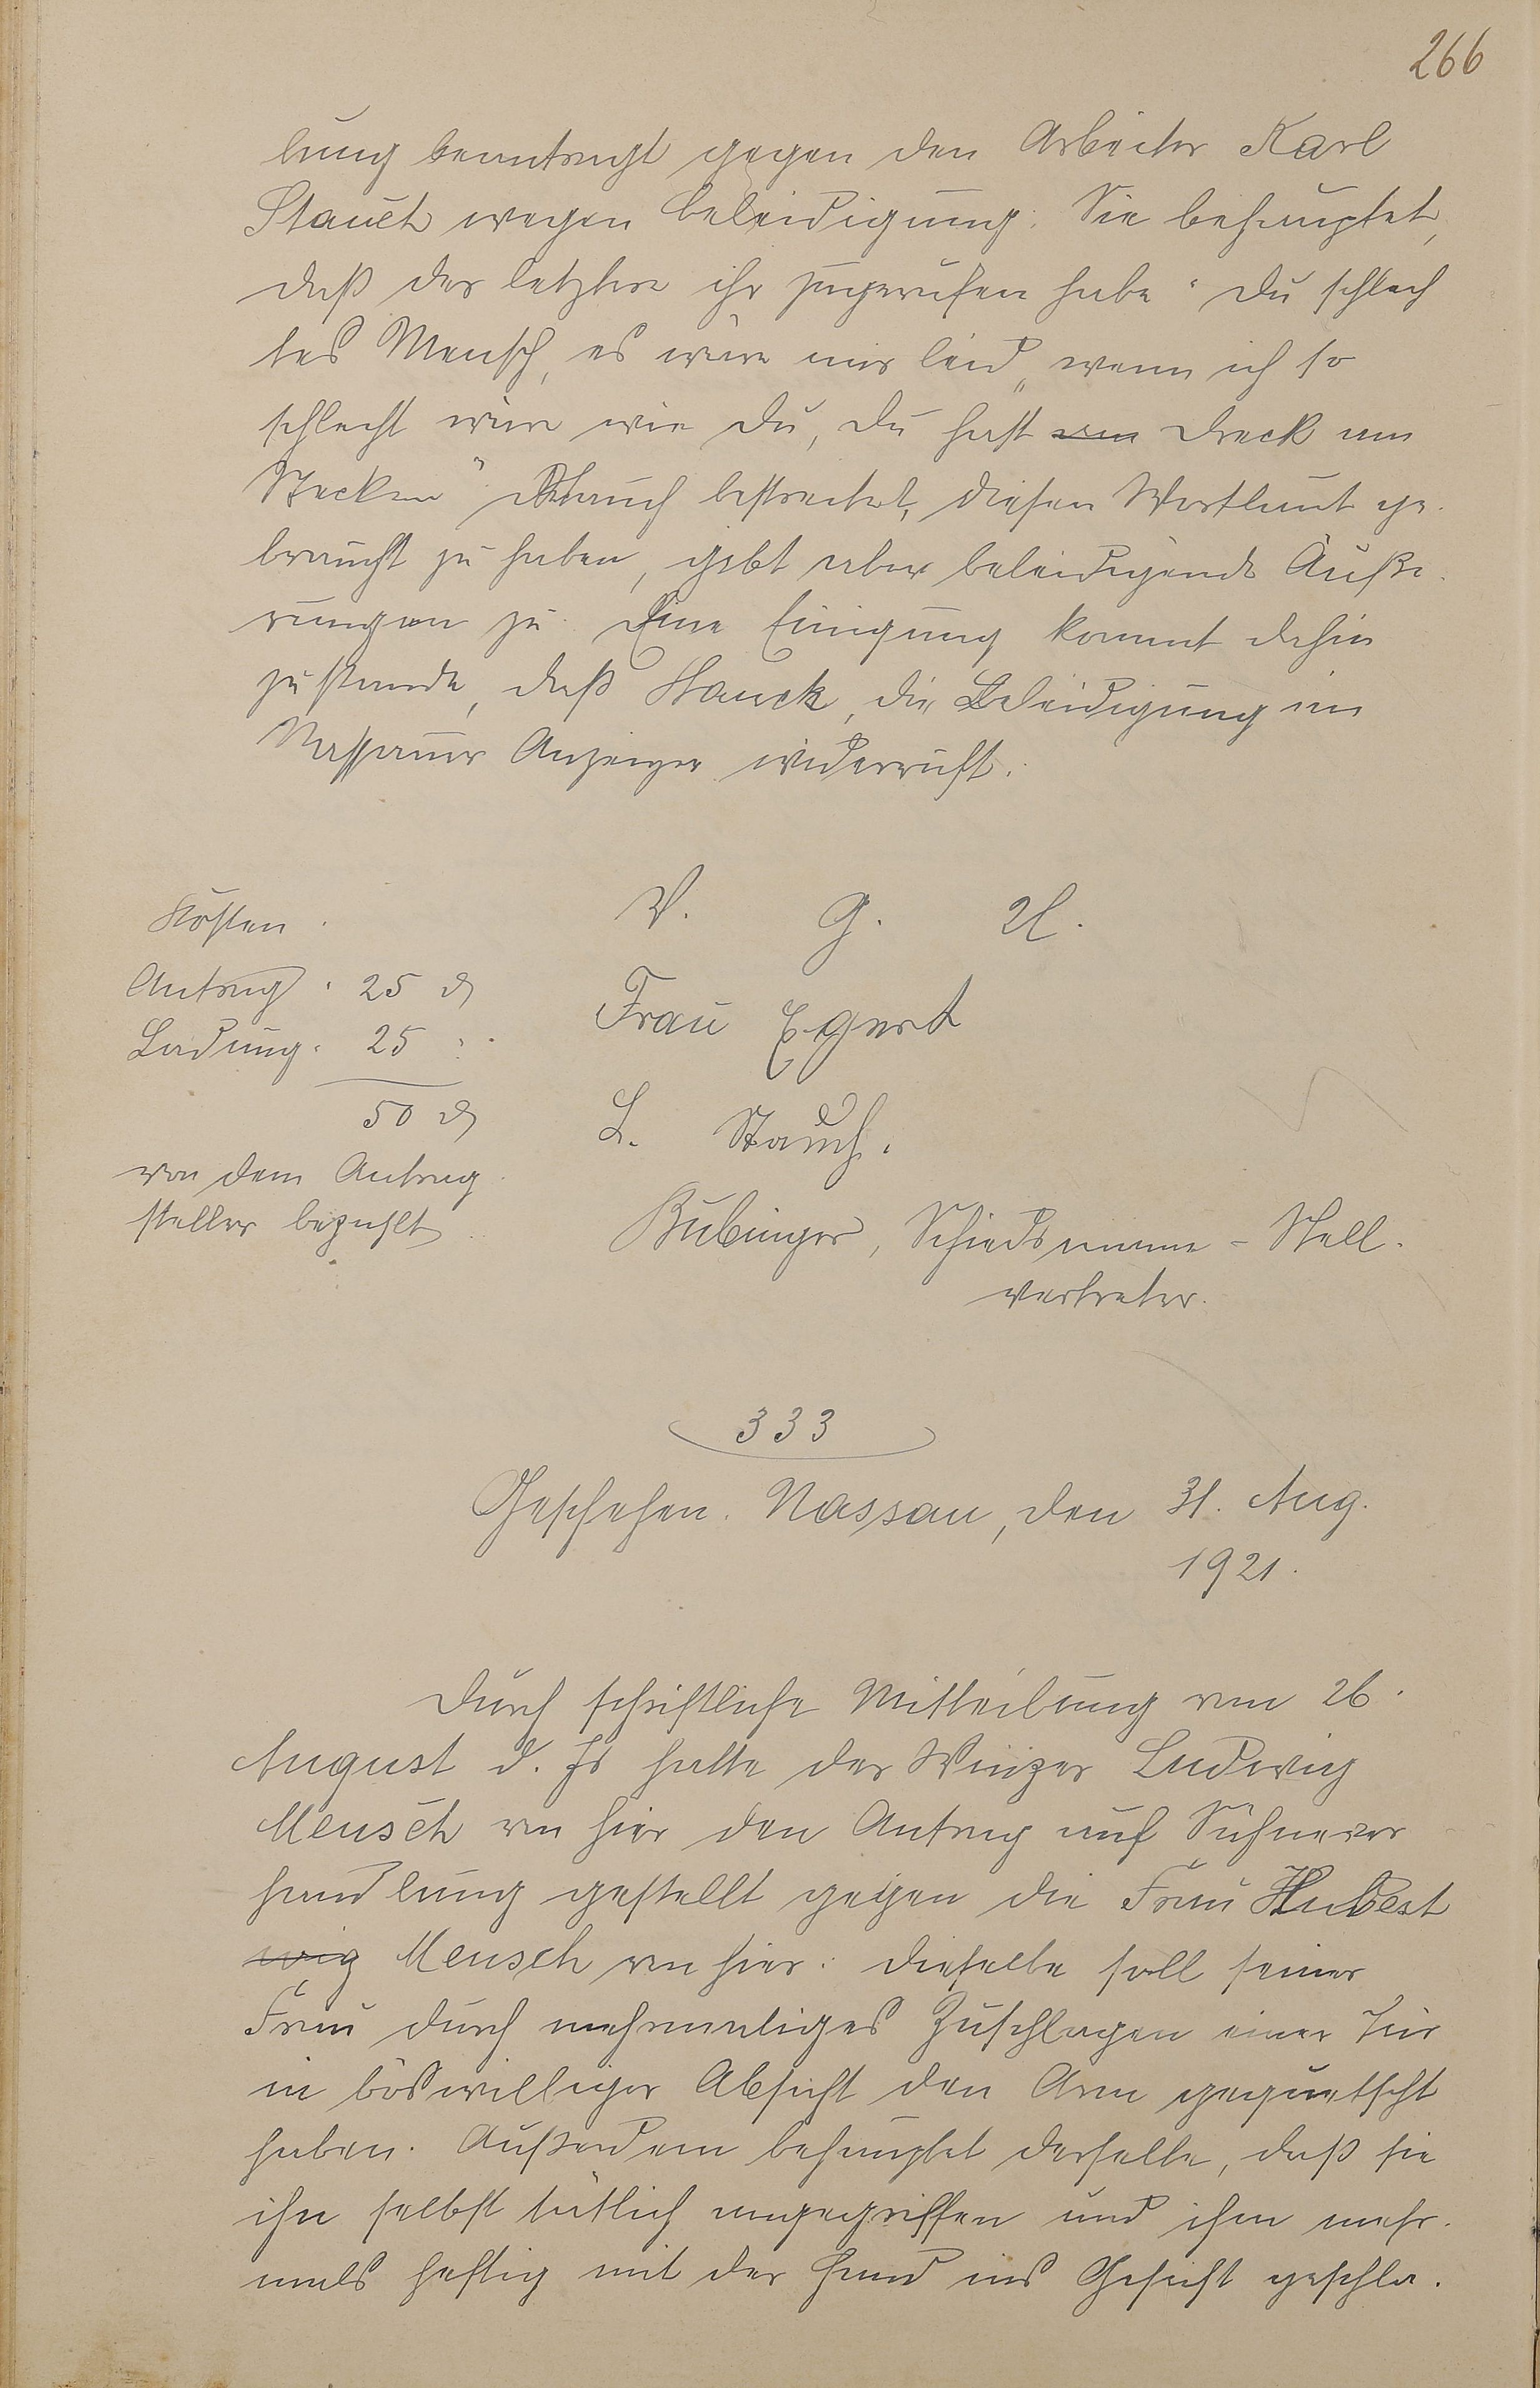 266
lung beantragt gegen den Arbeiter Karl
Stauch wegen Beleidigung. Sie behauptet,
daß der letztere ihr zugerufen habe „Du schlech
tes Mensch, es wäre mir leid, wenn ich so
schlecht wäre wie Du, Du hast Dreck am
Stecken" Stauch bestreitet, diesen Wortlaut ge-
braucht zu haben, gibt aber beleidigende Äuße-
rungen zu. Eine Einigung kommt dahin
zustande, daß Stauch, die Beleidigung im
Nassauer Anzeiger widerruft.
V. G. U.
Kosten.
Antrag: 25 ₰
Ladung: 25 "
50 ₰
von dem Antrag
steller bezahlt
Frau Egert
L. Stauch.
Bubinger, Schiedsmann-Stell-
vertreter.
333
Geschehen. Nassau, den 31. Aug.
1921.
Durch schriftliche Mitteilung vom 26.
August d. Js hatte der Winzer Ludwig
Meusch von hier den Antrag auf Sühnever
handlung gestellt gegen die Frau Hubert
wig Meusch von hier: dieselbe soll seiner
Frau durch mehrmaliges Zuschlagen einer Tür
in böswilliger Absicht den Arm gequetscht
haben. Außerdem behauptet derselbe, daß sie
ihn selbst tätlich angegriffen und ihm mehr-
mals heftig mit der Hand ins Gesicht geschla-